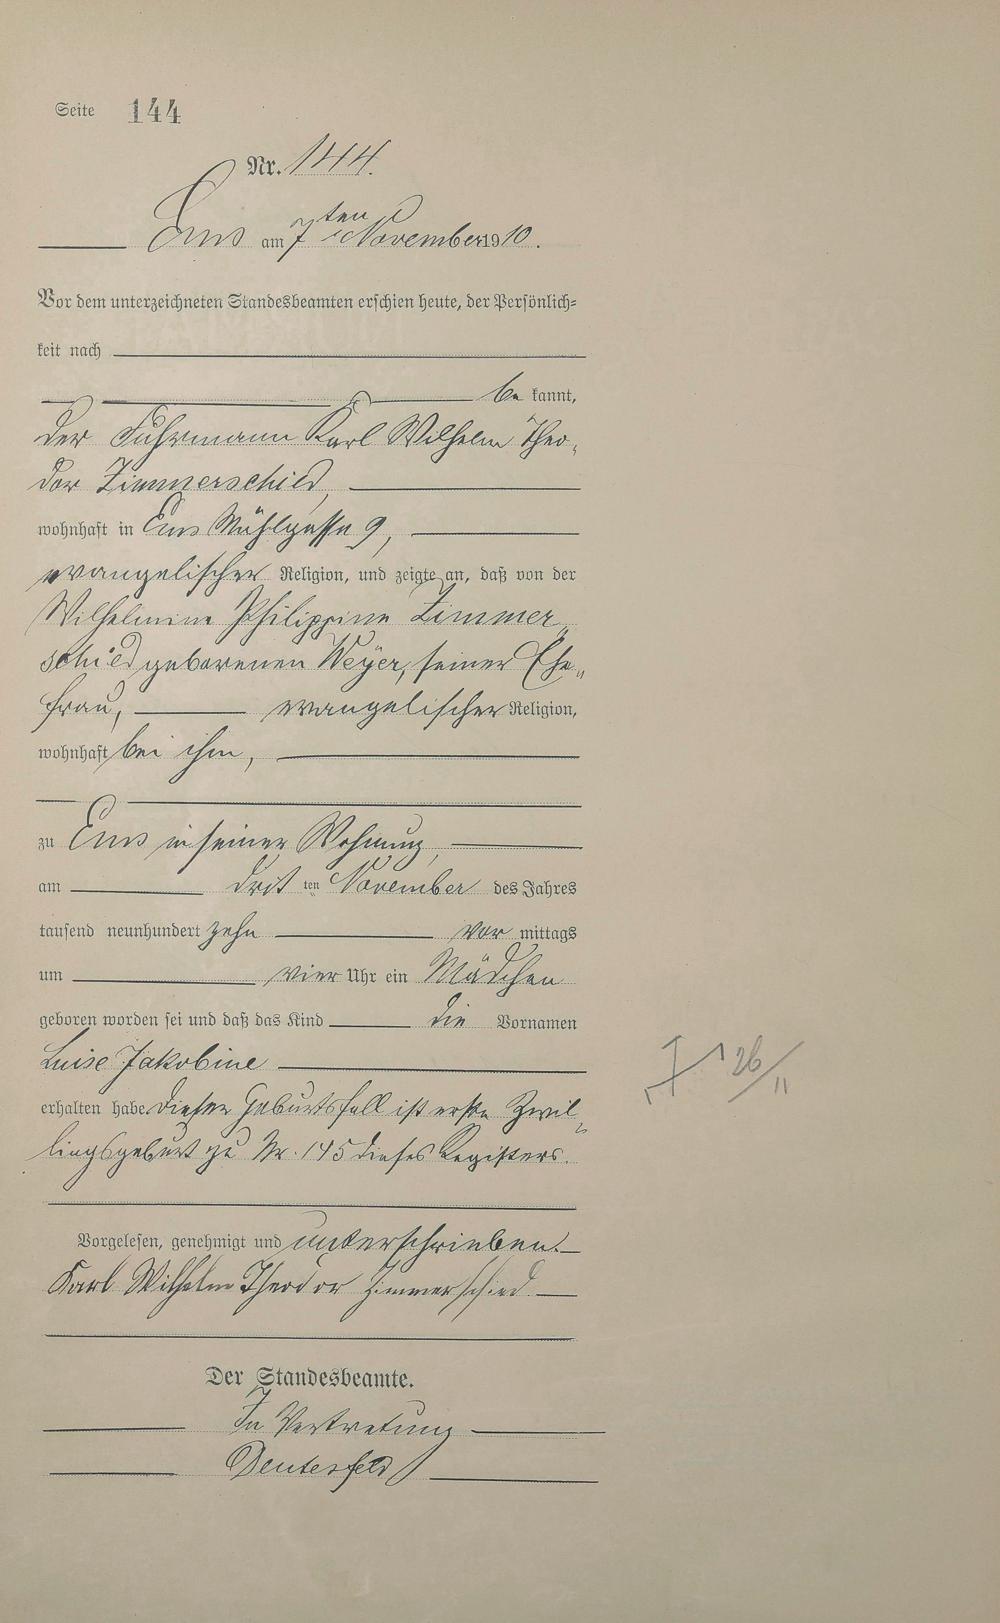 Seite 144
Nr. 144.
Ems am 7ten November 1910.
Vor dem unterzeichneten Standesbeamten erschien heute, der Persönlich-
keit nach
be kannt,
der Fuhrmann Karl Wilhelm Theo-
dor Zimmerschied,
wohnhaft in Ems Mühlgasse 9,
evangelischer Religion, und zeigte an, daß von der
Wilhelmine Philippine Zimmer-
schied geborenen Weyer, seiner Ehe-
frau, evangelischer Religion,
wohnhaft bei ihm,
zu Ems in seiner Wohnung,
am dritten November des Jahres
tausend neunhundert zehn vor mittags
um vier Uhr ein Mädchen
geboren worden sei und daß das Kind die Vornamen
Luise Jakobine
erhalten habe. Dieser Geburtsfall ist erste Zwil-
lingsgeburt zu Nr. 145 dieses Registers.
Vorgelesen, genehmigt und unterschrieben.
Karl Wilhelm Theodor Zimmerschied
Der Standesbeamte.
In Vertretung
26/11